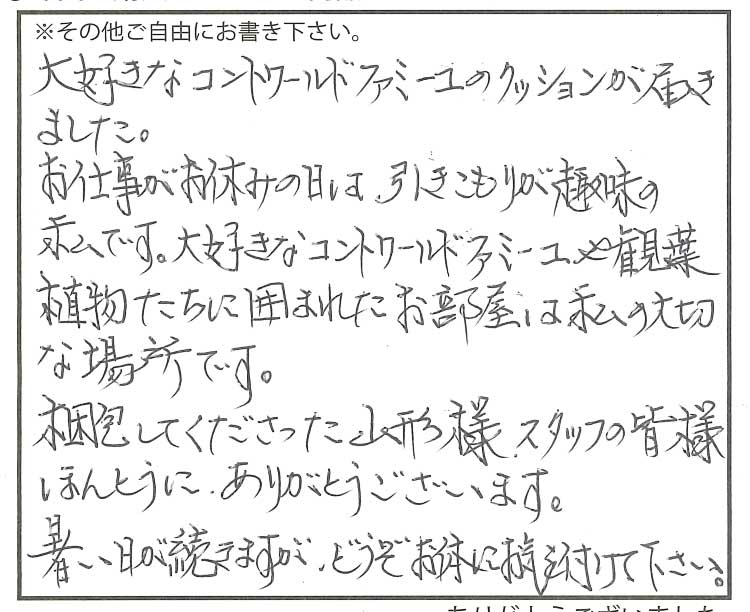 ※その他ご自由にお書き下さい。
大好きなコントワールドファミーユのクッションが届き
ました。
お仕事がお休みの日は、引きこもりが趣味の
私です。大好きなコントワールドファミーユや観葉
植物たちに囲まれたお部屋は私の大切
な場所です。
梱包してくださった山形様、スタッフの皆様
ほんとうに、ありがとうございます。
暑い日が続きますが、どうぞお体にお気を付けて下さい。